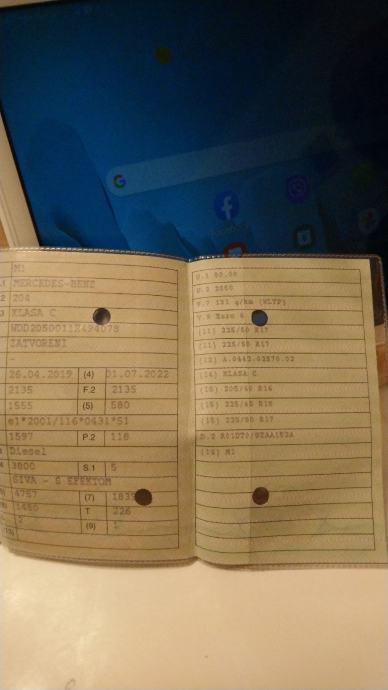 M1
MERCEDES-BENZ
204
KLASA C
ZATVORENI
26.04.2019 (4) 01.07.2022
2135 F.2 2135
1555 (5) 580
e1*2001/116*0431*51
1597 P.2 118
Diesel
3800 S.1 5
SIVA - S EFEKTOM
4757 (7)
1450 T 226
2 (9) 1
U.2 2850
V.7 131 g/km (WLTP)
V.9 Euro 6
(11) 225/50 R17
(11) 225/50 R17
(14) KLASA C
(15) 205/60 R16
(15) 225/45 R18
(15) 225/50 R17
(16) M1